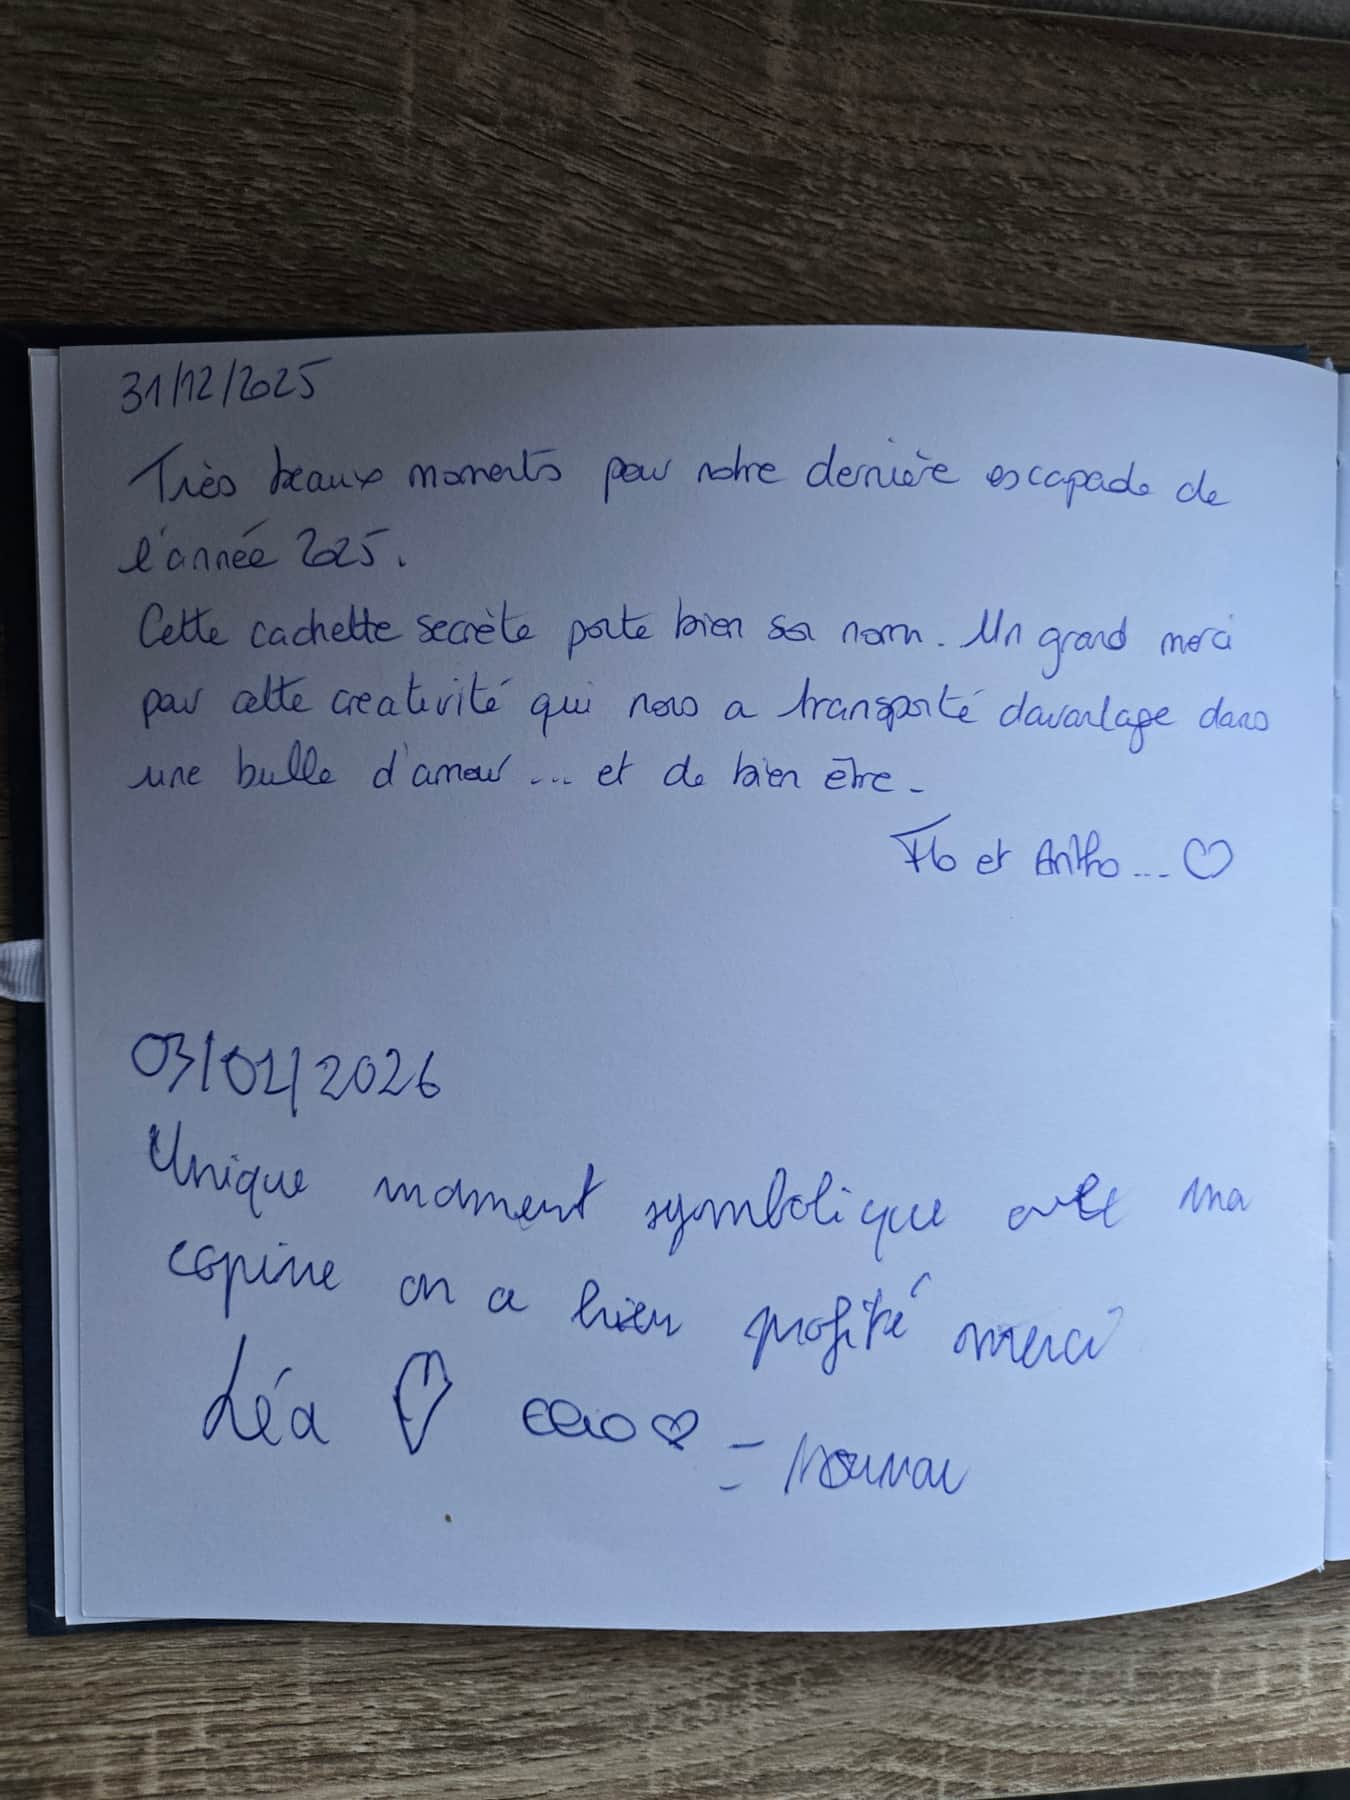 31/12/2025
Très beaux moments pour notre dernière escapade de
l'année 2025.
Cette cachette secrète porte bien son nom. Un grand merci
pour cette creativité qui nous a transporté davantage dans
une bulle d'amour ... et de bien être.
Flo et Antho ... ♡
03/01/2026
Unique moment symbolique avec ma
copine on a bien profité merci
Léa